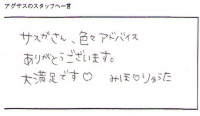 アグサスのスタッフへ一言
サスガさん、色々アドバイス
ありがとうございます。
大満足です♡ みほ♡りゅうた